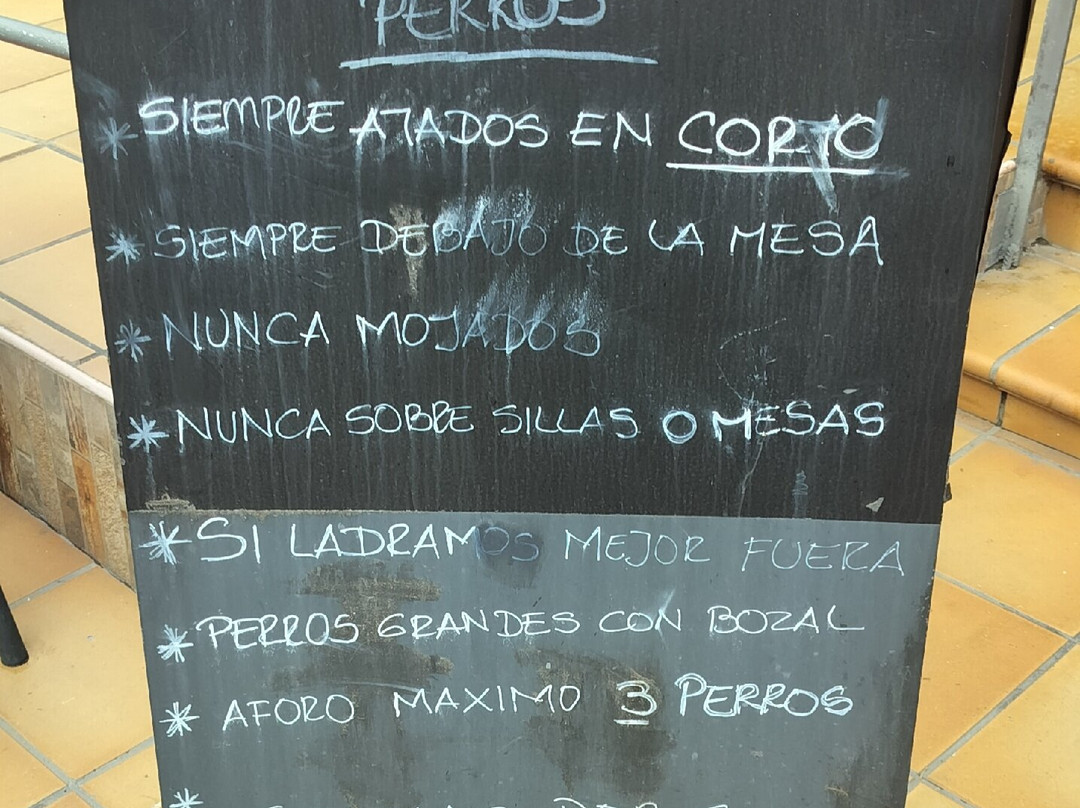 PERROS
* SIEMPRE ATADOS EN CORTO
* SIEMPRE DEBAJO DE LA MESA
* NUNCA MOJADOS
* NUNCA SOBRE SILLAS O MESAS
* SI LADRAMOS MEJOR FUERA
* PERROS GRANDES CON BOZAL
* AFORO MAXIMO 3 PERROS
*